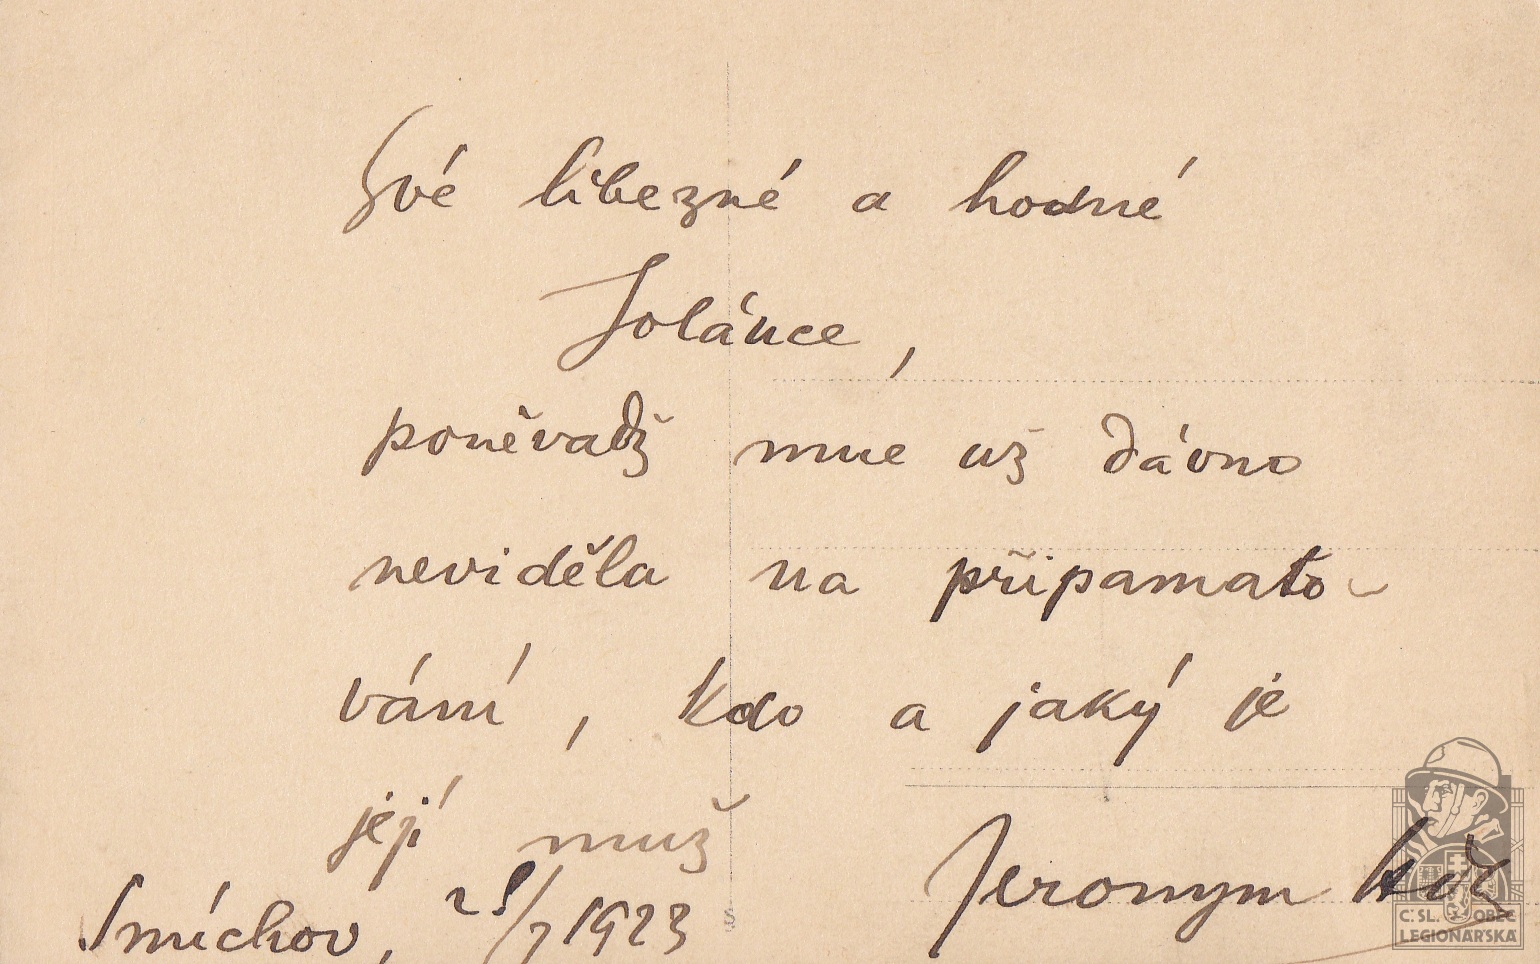 Své líbezné a hodné
Jolánce,
poněvadž mne už dávno
neviděla na připamato-
vání, kdo a jaký je
její muž
Jeronym
Smíchov, 28/7 1923
S
Č. SL. OBEC
LEGIONÁŘSKÁ